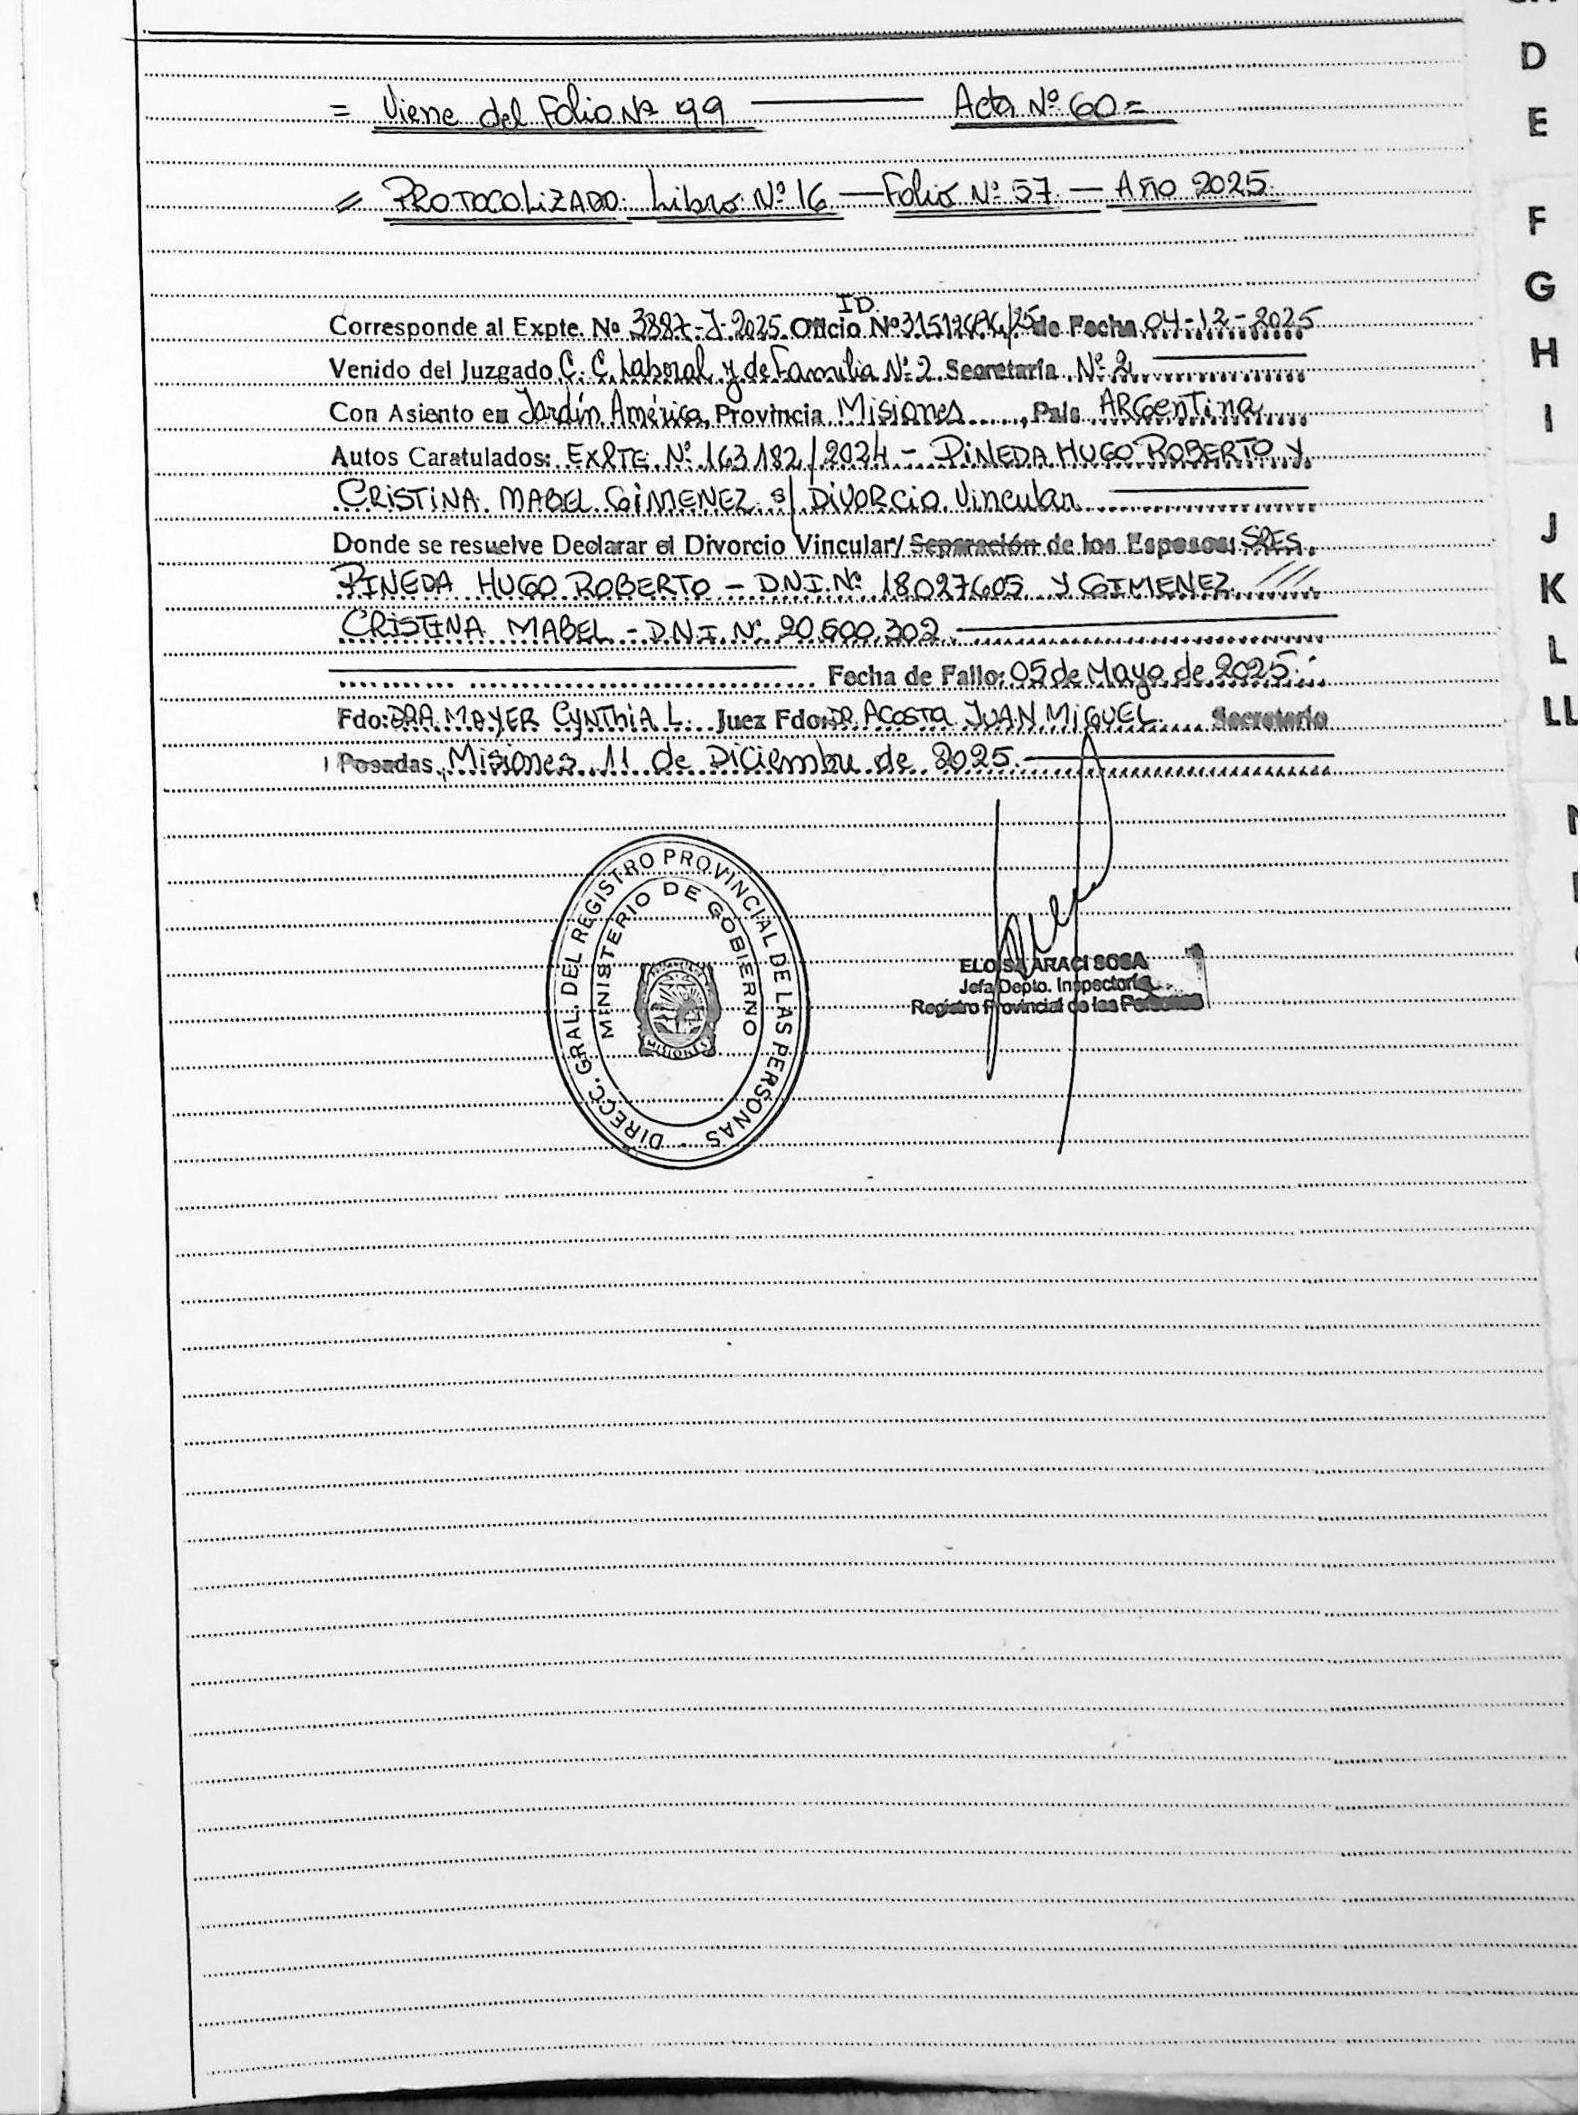 = Viene del Folio Nº 99 ——— Acta Nº 60 =
= PROTOCOLIZADO: Libro Nº 16 — Folio Nº 57 — Año 2025
ID.
Corresponde al Expte. Nº 3887-J-2025 Oficio Nº /25 de Fecha 04-12-2025
Venido del Juzgado C. C. Laboral y de Familia Nº 2 Secretaría Nº 2
Con Asiento en Jardín América, Provincia Misiones, País ARGentina
Autos Caratulados: EXPTE Nº 163182/2024 - PINEDA HUGO ROBERTO Y
CRISTINA MABEL GIMENEZ s/ DIVORCIO Vincular
Donde se resuelve Declarar el Divorcio Vincular/ Separación de los Esposos: SRES.
PINEDA HUGO ROBERTO - D.N.I. Nº 18027605 Y GIMENEZ ///
CRISTINA MABEL - D.N.I. Nº 20.600.302
Fecha de Fallo: 05 de Mayo de 2025
Fdo: DRA. MAYER CYNTHIA L. Juez Fdo: DR. ACOSTA JUAN MIGUEL Secretario
Posadas, Misiones 11 de Diciembre de 2025
DIRECC. GRAL. DEL REGISTRO PROVINCIAL DE LAS PERSONAS
MINISTERIO DE GOBIERNO
MISIONES
ELOISA ARACI SOSA
Jefa Depto. Inspectoría
Registro Provincial de las Personas
D
E
F
G
H
I
J
K
L
LL